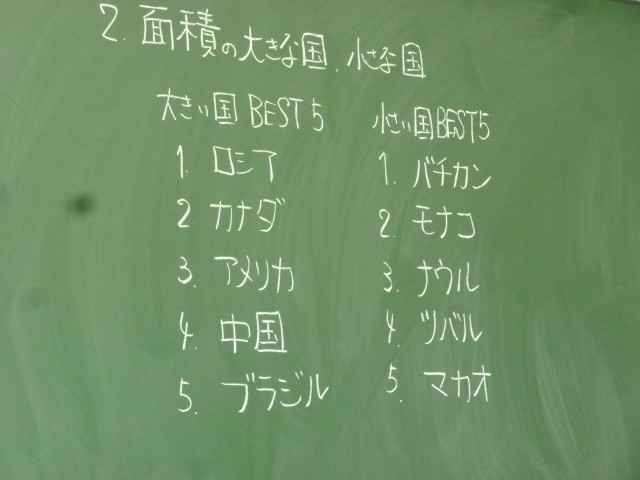 2. 面積の大きな国、小さな国
大きい国 BEST5
1. ロシア
2 カナダ
3. アメリカ
4. 中国
5. ブラジル
小さい国BEST5
1. バチカン
2. モナコ
3. ナウル
4. ツバル
5. マカオ